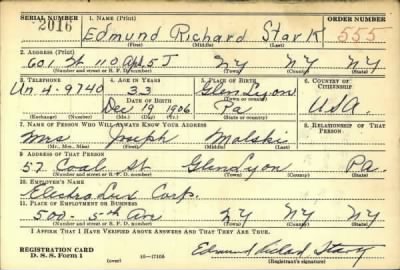 SERIAL NUMBER 1. Name (Print) ORDER NUMBER
2016 Edmund Richard Stark 555
(First) (Middle) (Last)
2. Address (Print)
601 W 110 Apt 5J NY NY NY
(Number and street or R. F. D. number) (Town) (County) (State)
3. Telephone 4. Age in Years 5. Place of Birth 6. Country of Citizenship
Un. 4-9740 33 Glen Lyon
Date of Birth (Town or county)
Dec 19 1906 Pa USA
(Exchange) (Number) (Mo.) (Day) (Yr.) (State or country)
7. Name of Person Who Will Always Know Your Address 8. Relationship of That Person
Mrs Joseph Malski
(Mr., Mrs., Miss) (First) (Middle) (Last)
9. Address of That Person
57 Coal St Glen Lyon Pa.
(Number and street or R. F. D. number) (Town) (County) (State)
10. Employer's Name
Electro Lux Corp.
11. Place of Employment or Business
500 - 5th Ave NY NY NY
(Number and street or R. F. D. number) (Town) (County) (State)
I Affirm That I Have Verified Above Answers and That They Are True.
REGISTRATION CARD
D. S. S. Form 1 (over) 16-17105 Edmund Richard Stark
(Registrant's signature)